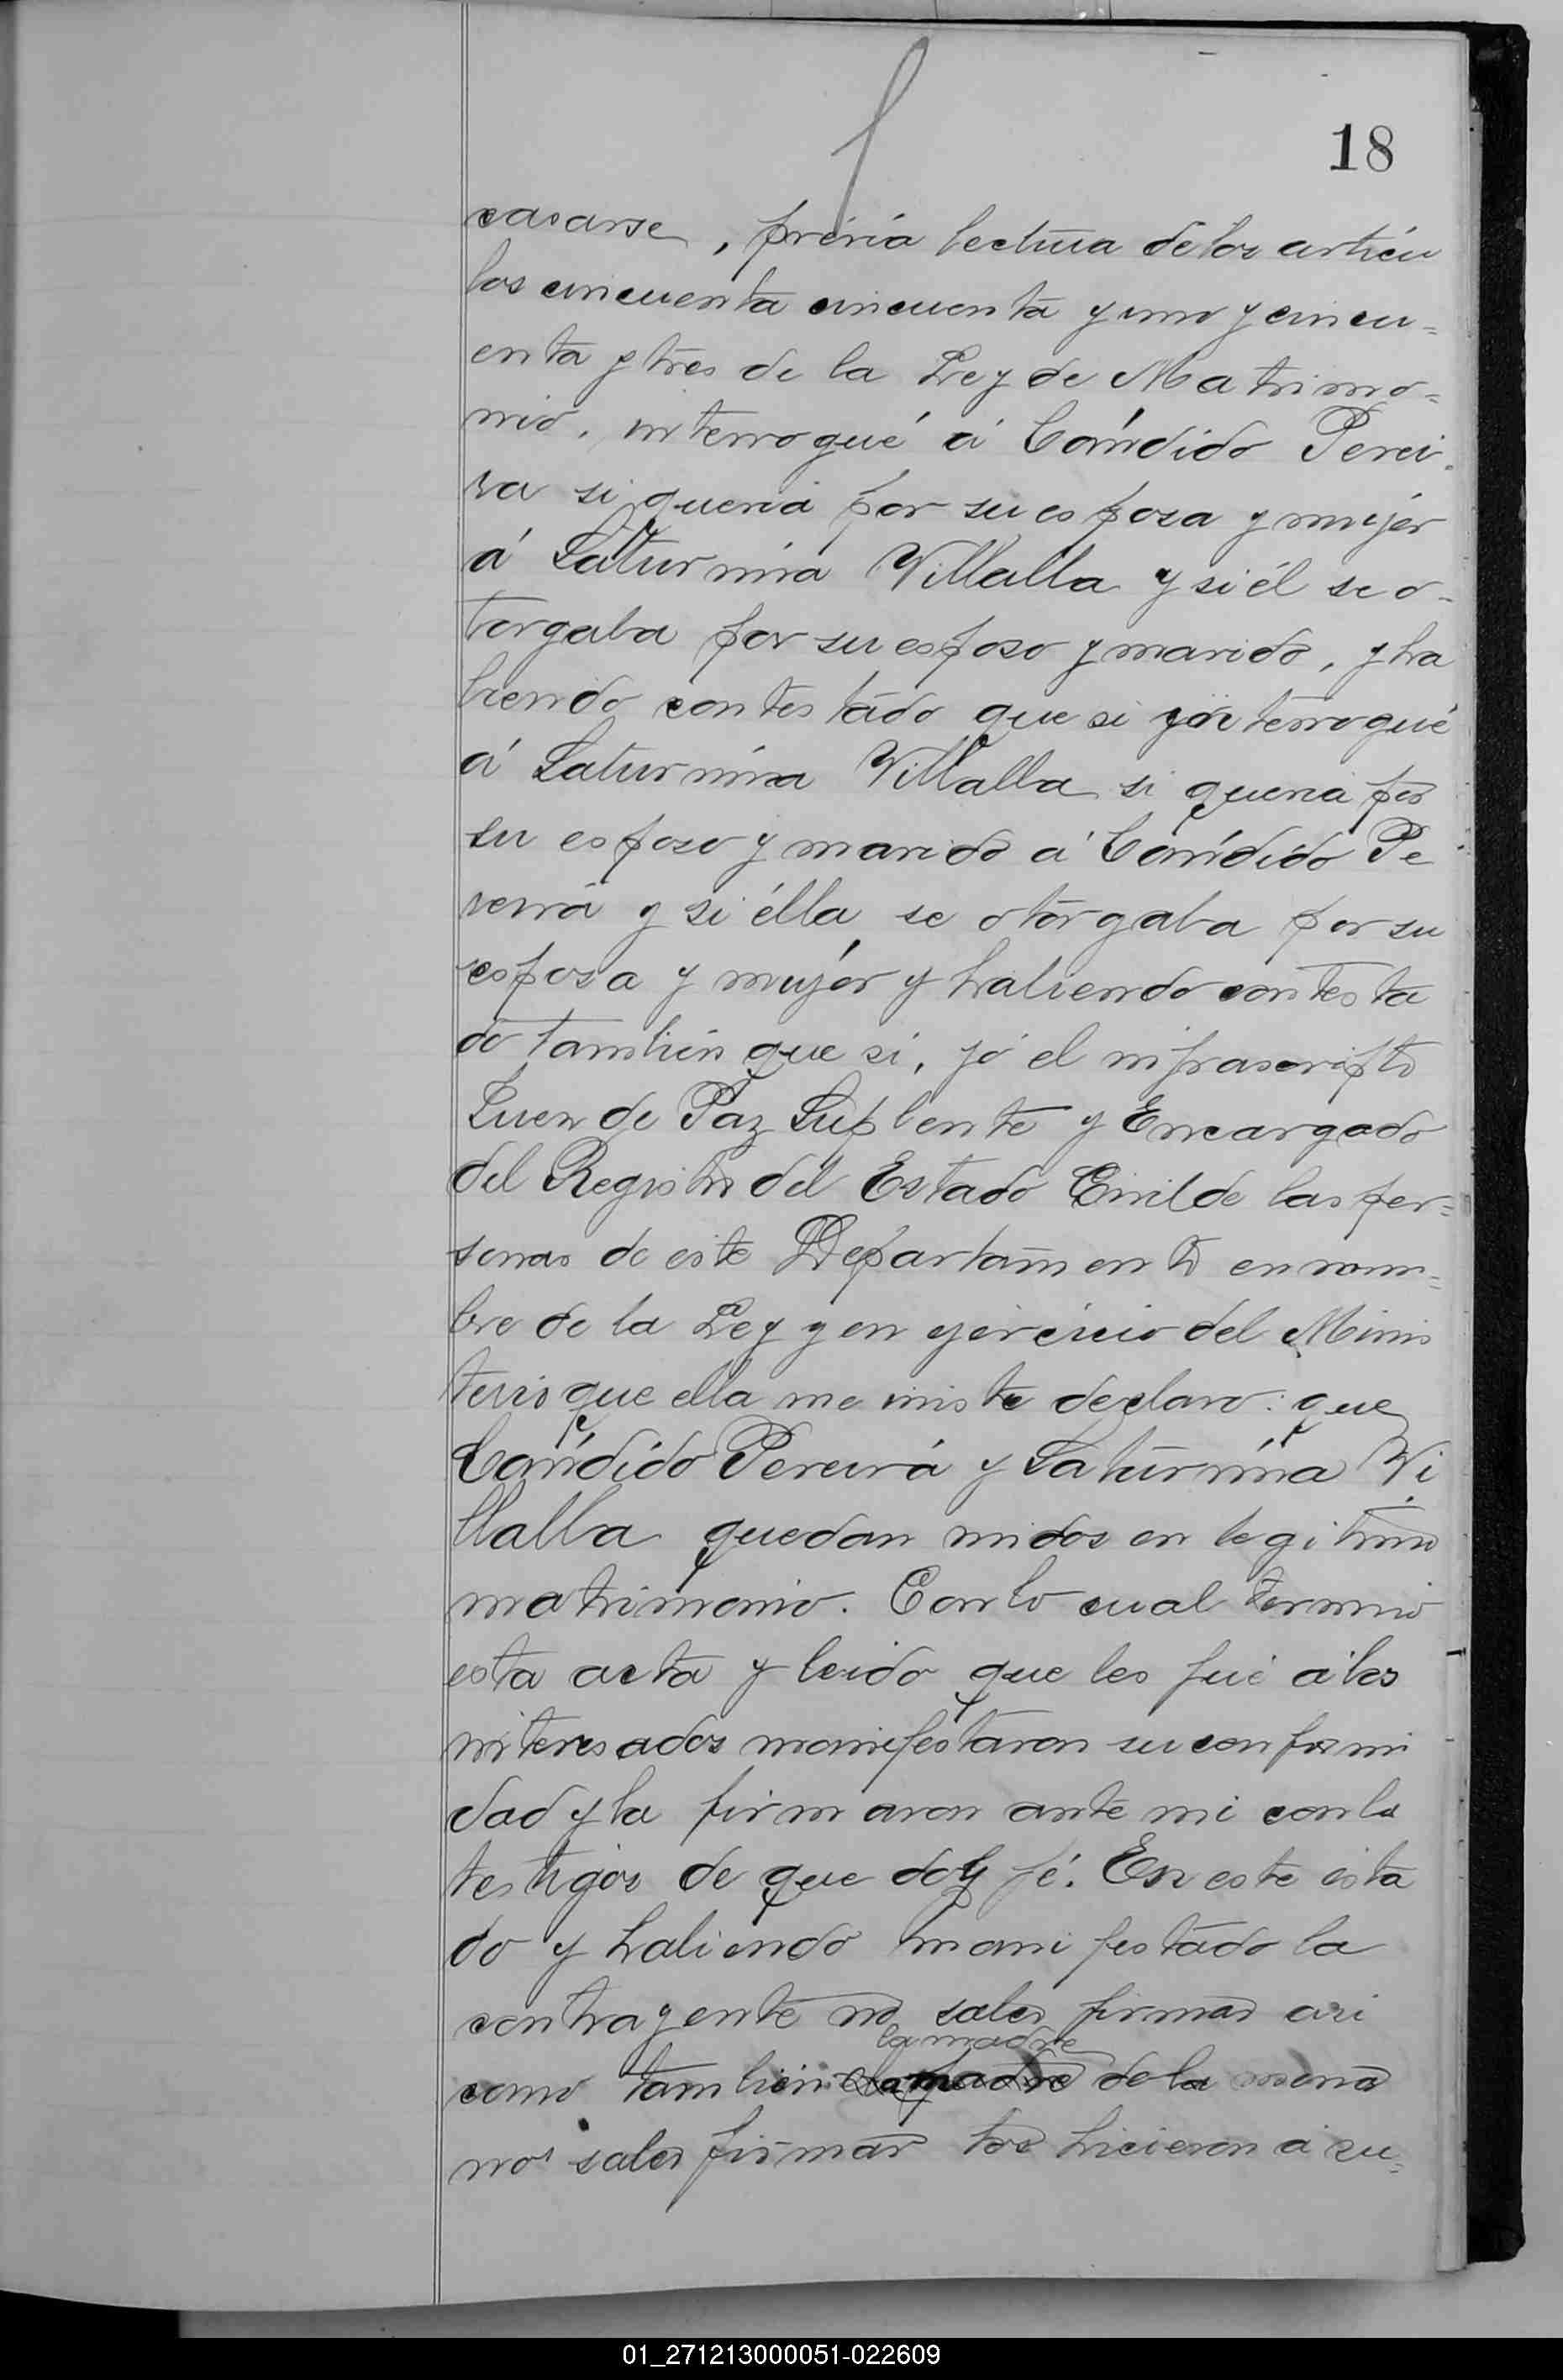 18
casarse, prévia lectura de los articu
los cincuenta cincuenta y uno y cincu=
enta y tres de la Ley de Matrimo=
nio, interrogué á Cándido Perei=
ra si queria por su esposa y mujér
á Saturnina Villalba y si él se o-
torgaba por su esposo y marido, y ha
biendo contestado que si yó interrogué
á Saturnina Villalba si queria por
su esposo y marido á Cándido Pe
reira y si élla se otorgaba por su
esposa y mujér y habiendo contesta
do tambien que si, yó el infrascripto
Juez de Paz Suplente y Encargado
del Registro del Estado Civil de las per=
sonas de este Departamento en nom=
bre de la Ley y en ejercicio del Minis
terio que ella me inviste declaro: que
Cándido Pereira y Saturnina Vi
llalba quedan unidos en legitimo
matrimonio. Con lo cual termino
esta acta y leido que les fué á los
interesados manifestaron su conformi
dad y la firmaron ante mi con los
testigos de que doy fé. En este esta
do y habiendo manifestado la
contrayente no saber firmar asi
la madre
como tambien de la menor
no saber firmar los hicieron á su=
01_271213000051-022609